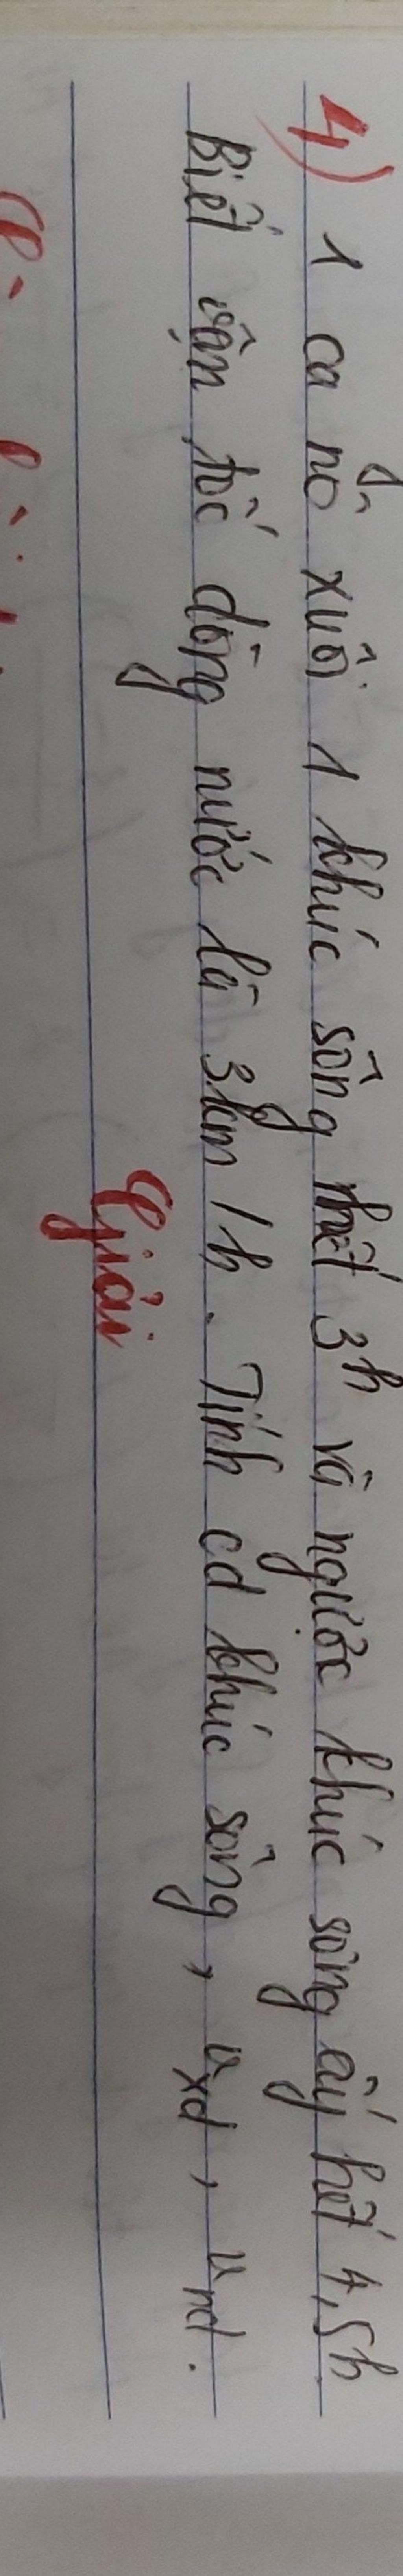 4) 1 ca nô xuôi 1 khúc sông hết 3h và ngược khúc sông ấy hết 4,5h
Biết vận tốc dòng nước là 3km/h. Tính cd khúc sông, vxd, vnd.
Giải